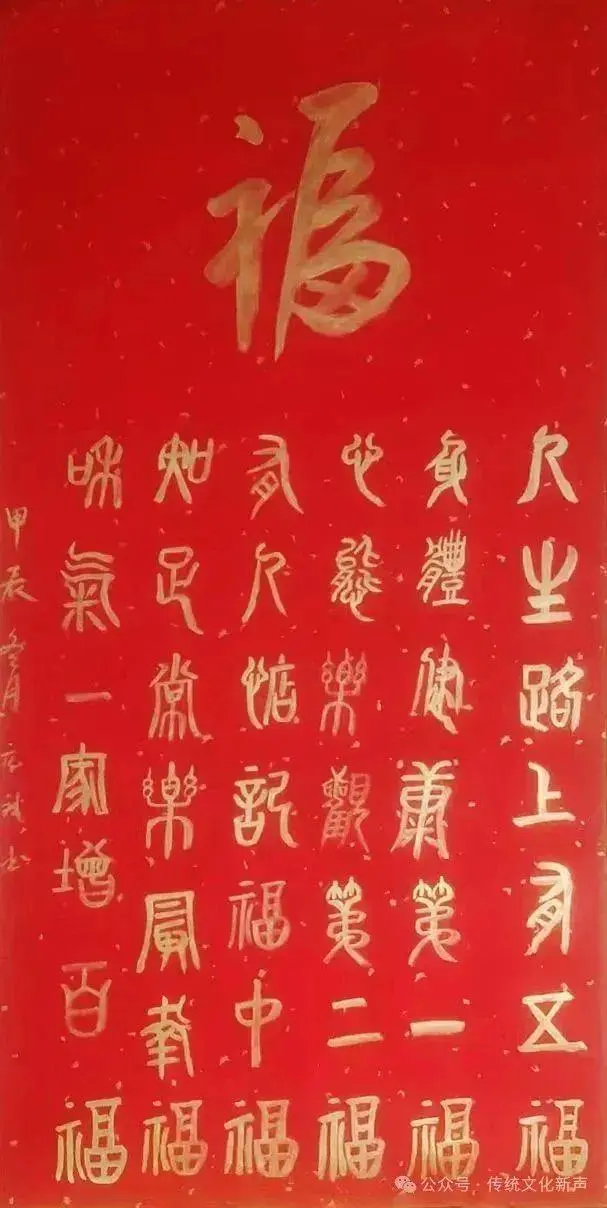 福
人生路上有五福
身體健康第一福
心態樂觀第二福
有人惦記福中福
知足常樂最幸福
和氣一家增百福
甲辰冬月
公众号·传统文化新声